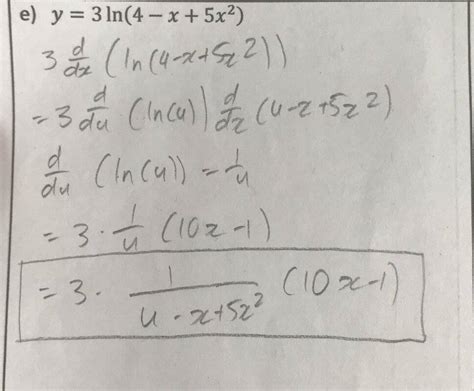 e) y = 3 ln(4 − x + 5x²)
3 d/dx (ln(4-x+5x²))
= 3 d/du (ln(u)) d/dx (4-x+5x²)
d/du (ln(u)) = 1/u
= 3 · 1/u (10x-1)
= 3 · 1/(4-x+5x²) (10x-1)